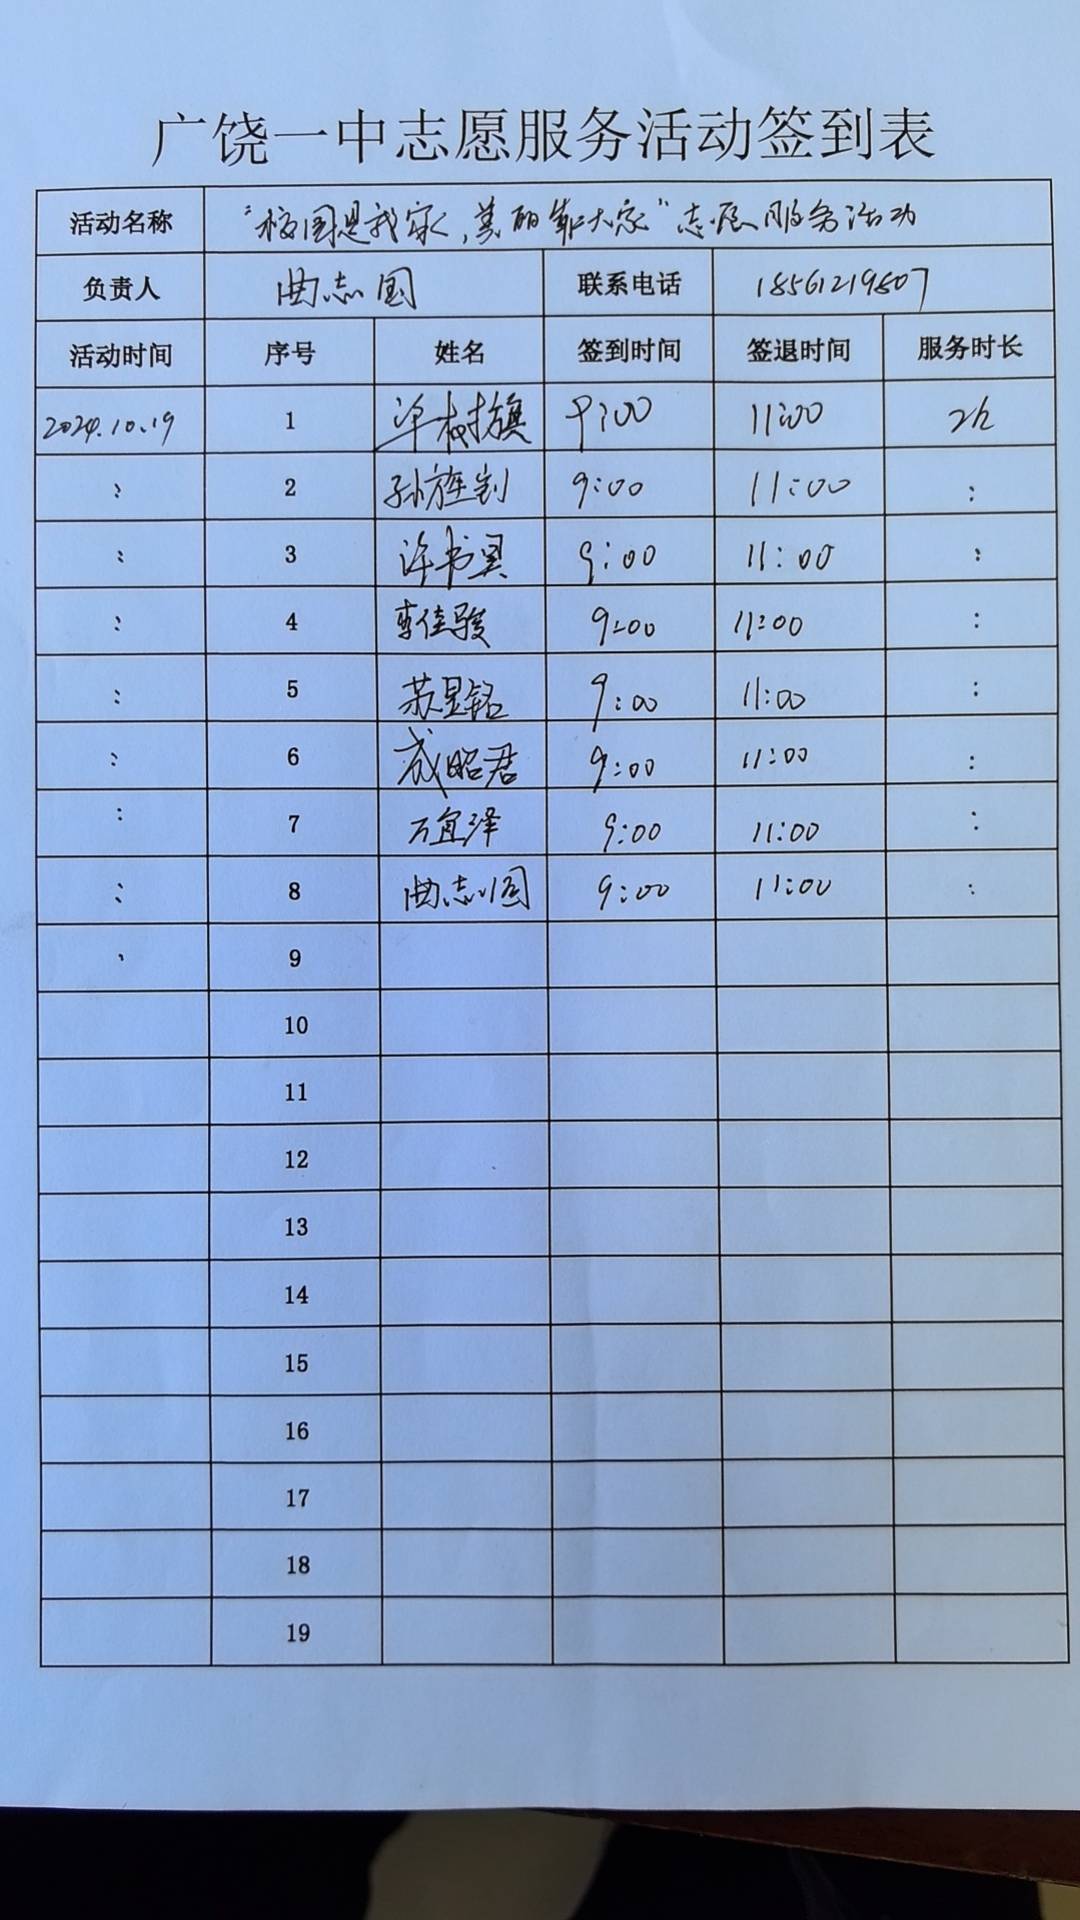 广饶一中志愿服务活动签到表
活动名称 “校园是我家，美丽靠大家”志愿服务活动
负责人 曲志国 联系电话 18561219807
活动时间 序号 姓名 签到时间 签退时间 服务时长
2024.10.19 1 9:00 11:00 2h
: 2 9:00 11:00 :
: 3 9:00 11:00 :
: 4 李佳骏 9:00 11:00 :
: 5 苏昱铭 9:00 11:00 :
: 6 成昭君 9:00 11:00 :
: 7 万宜泽 9:00 11:00 :
: 8 曲志国 9:00 11:00 :
9
10
11
12
13
14
15
16
17
18
19